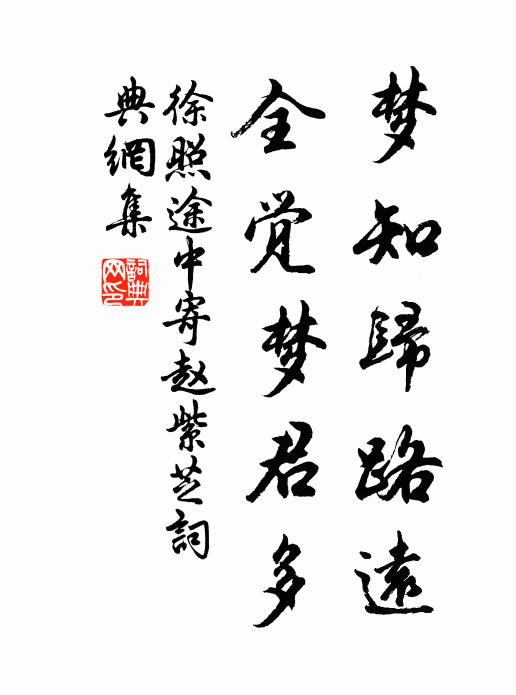 梦知歸路遠
全覚梦君多
徐照途中寄赵紫芝詞
典網集
詞典网印